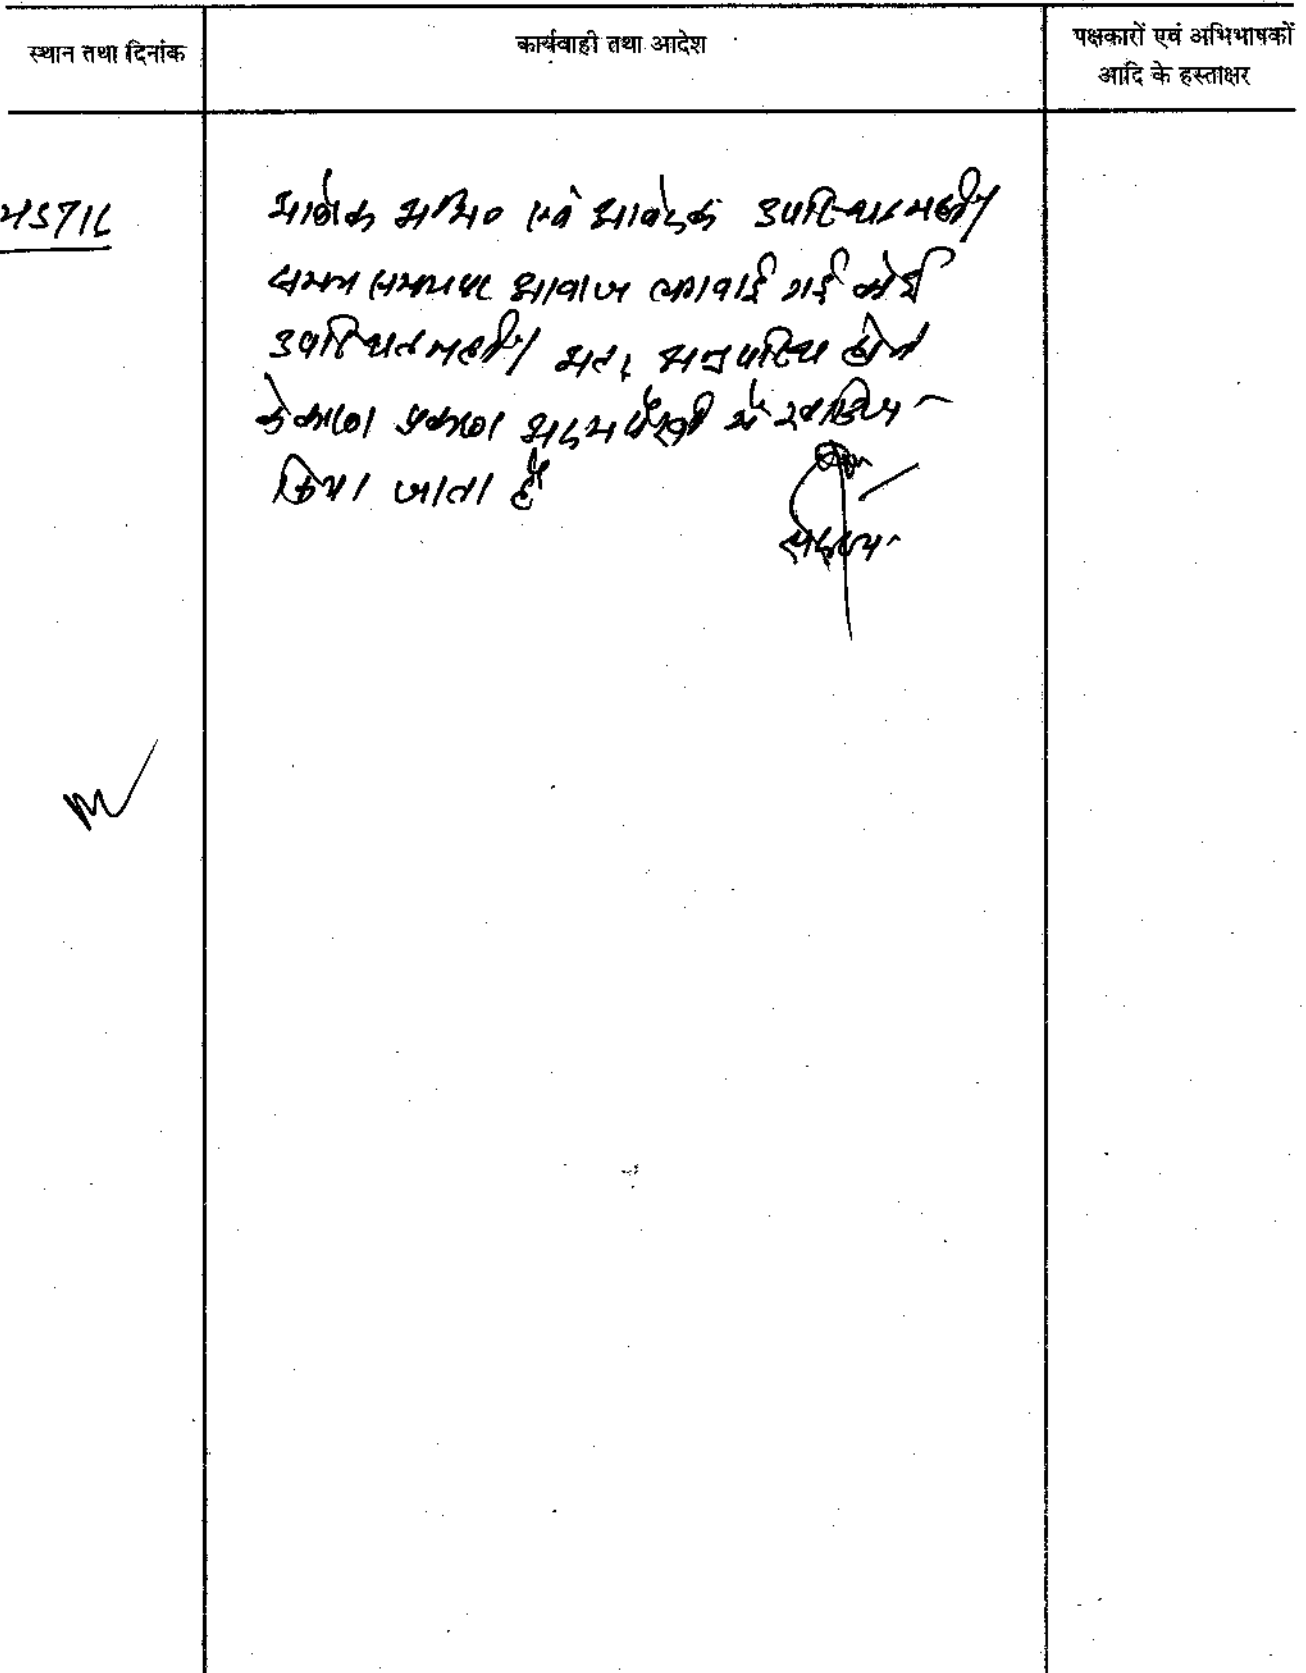 स्थान तथा दिनांक
कार्यवाही तथा आदेश
पक्षकारों एवं अभिभाषकों
आदि के हस्ताक्षर
आवेदक अभि० एवं आवेदक उपस्थित नहीं।
समय समय पर आवाज लगवाई गई कोई
उपस्थित नहीं। अतः अनुपस्थि होने
के कारण प्रकरण अदम पैरवी में खारिज
किया जाता है
सदस्य